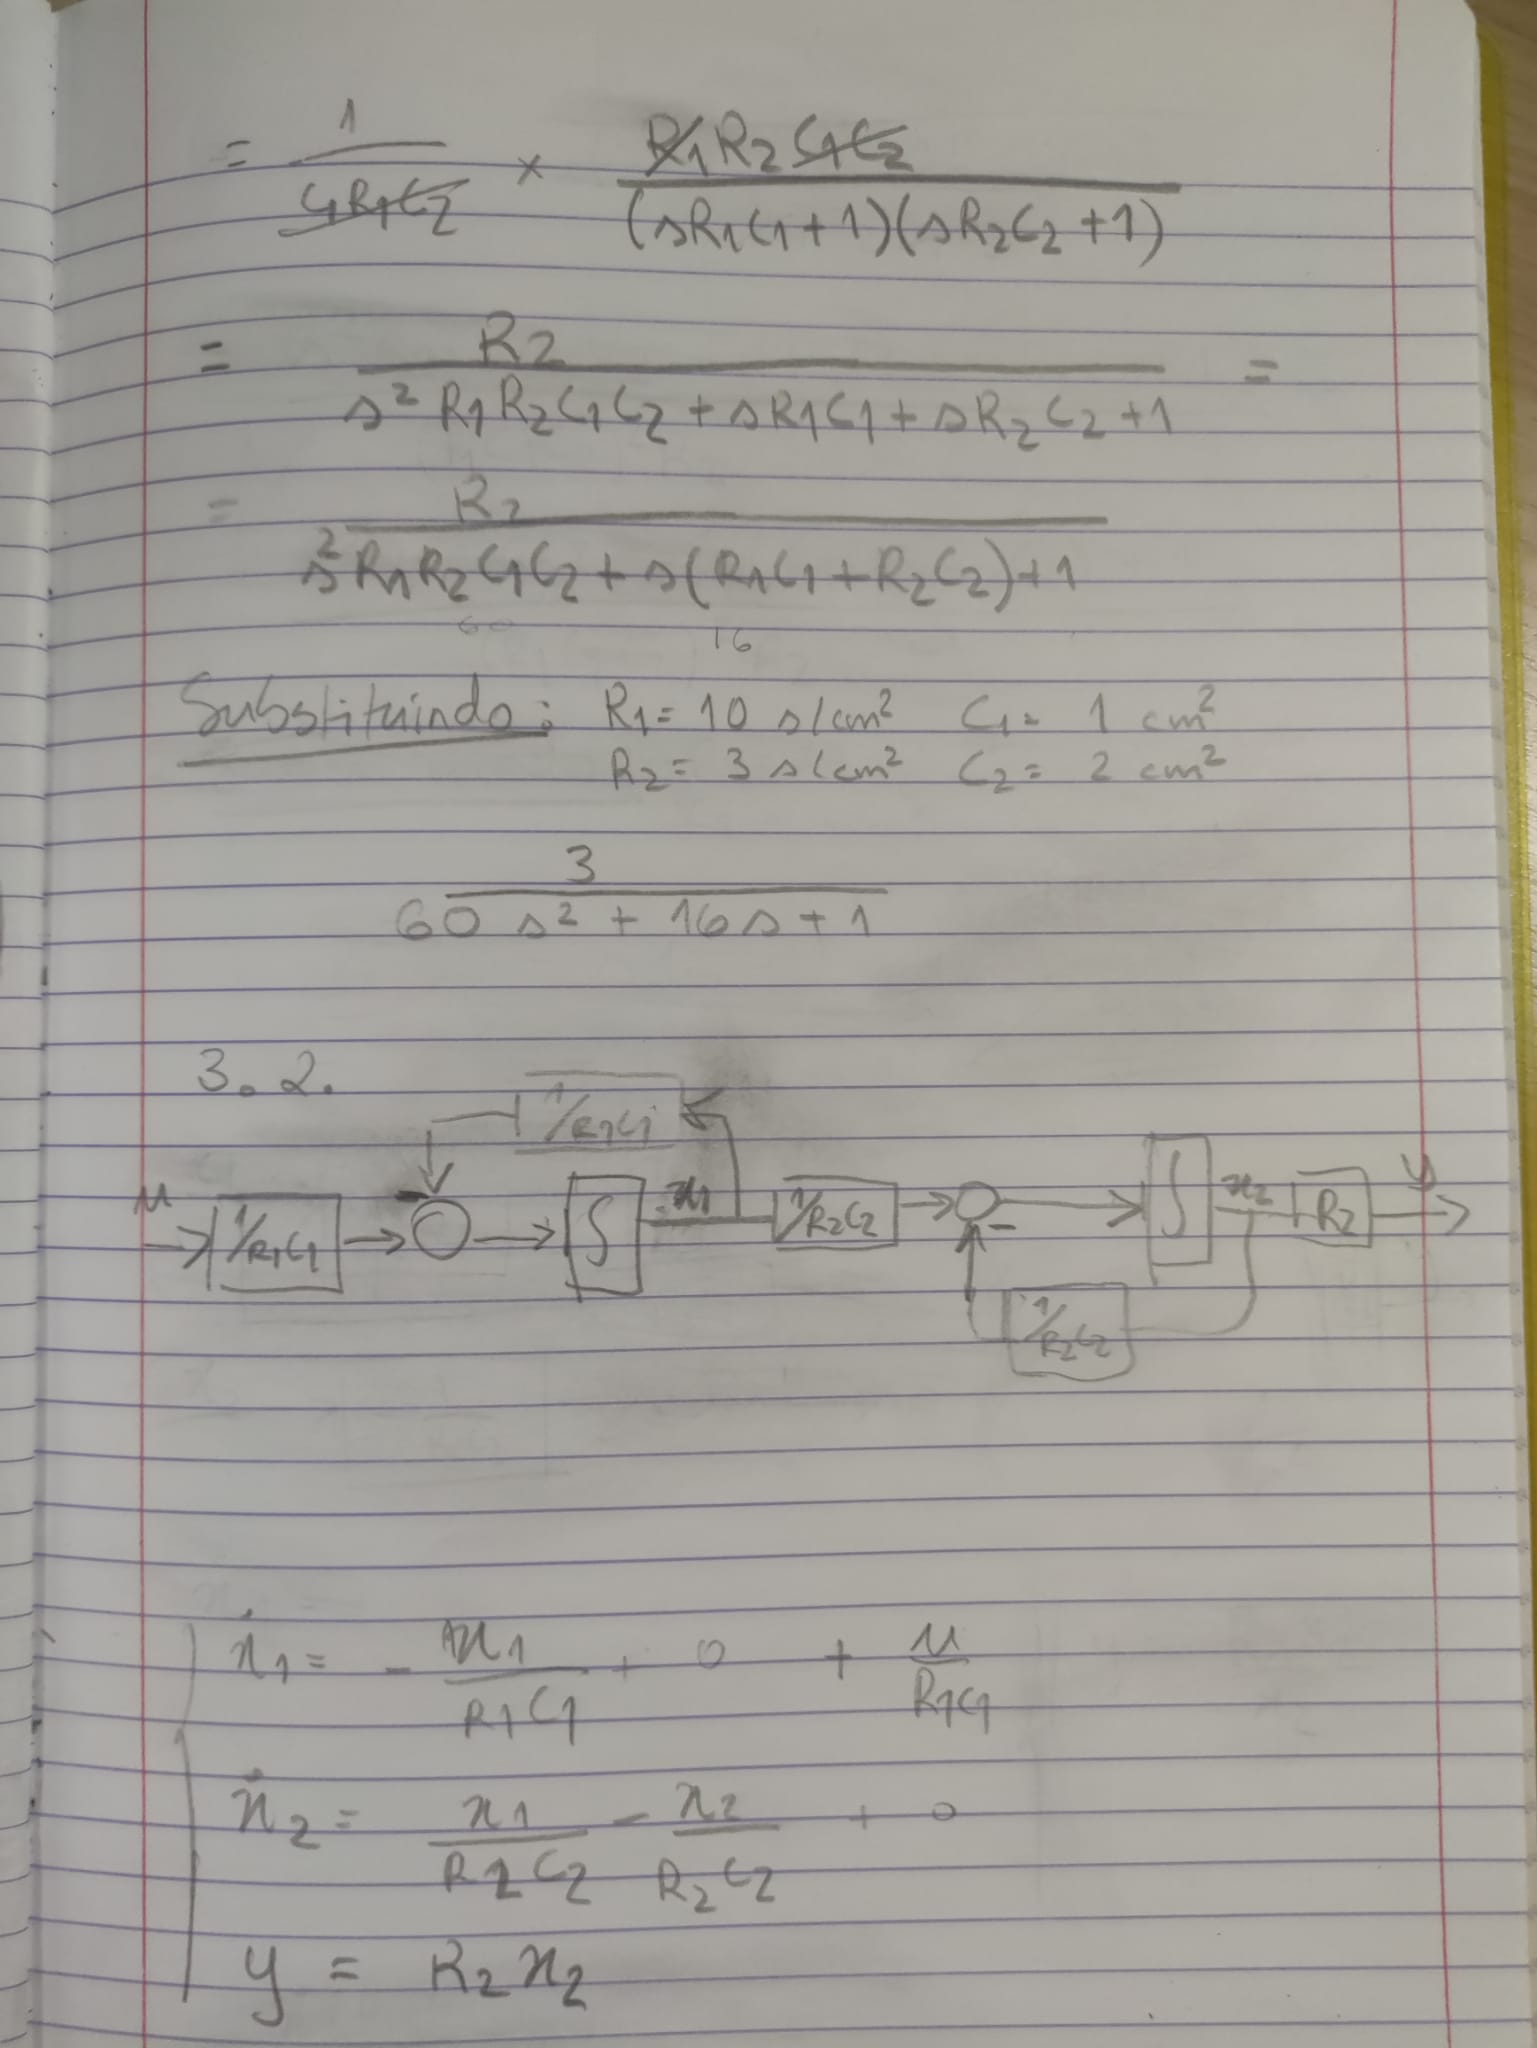 = 1/(C1R1C2) × R1R2C1C2/((sR1C1+1)(sR2C2+1))
= R2/(s² R1R2C1C2 + sR1C1 + sR2C2 + 1) =
= R2/(s²R1R2C1C2 + s(R1C1+R2C2)+1)
60 16
Substituindo: R1= 10 s/cm² C1= 1 cm²
R2= 3 s/cm² C2= 2 cm²
3/(60 s² + 16s + 1)
3.2.
1/R1C1
u 1/R1C1 - ∫ x1 1/R2C2 - ∫ x2 R2 y
1/R2C2
ẋ1 = - x1/(R1C1) + 0 + u/(R1C1)
ẋ2 = x1/(R2C2) - x2/(R2C2) + 0
y = R2 x2